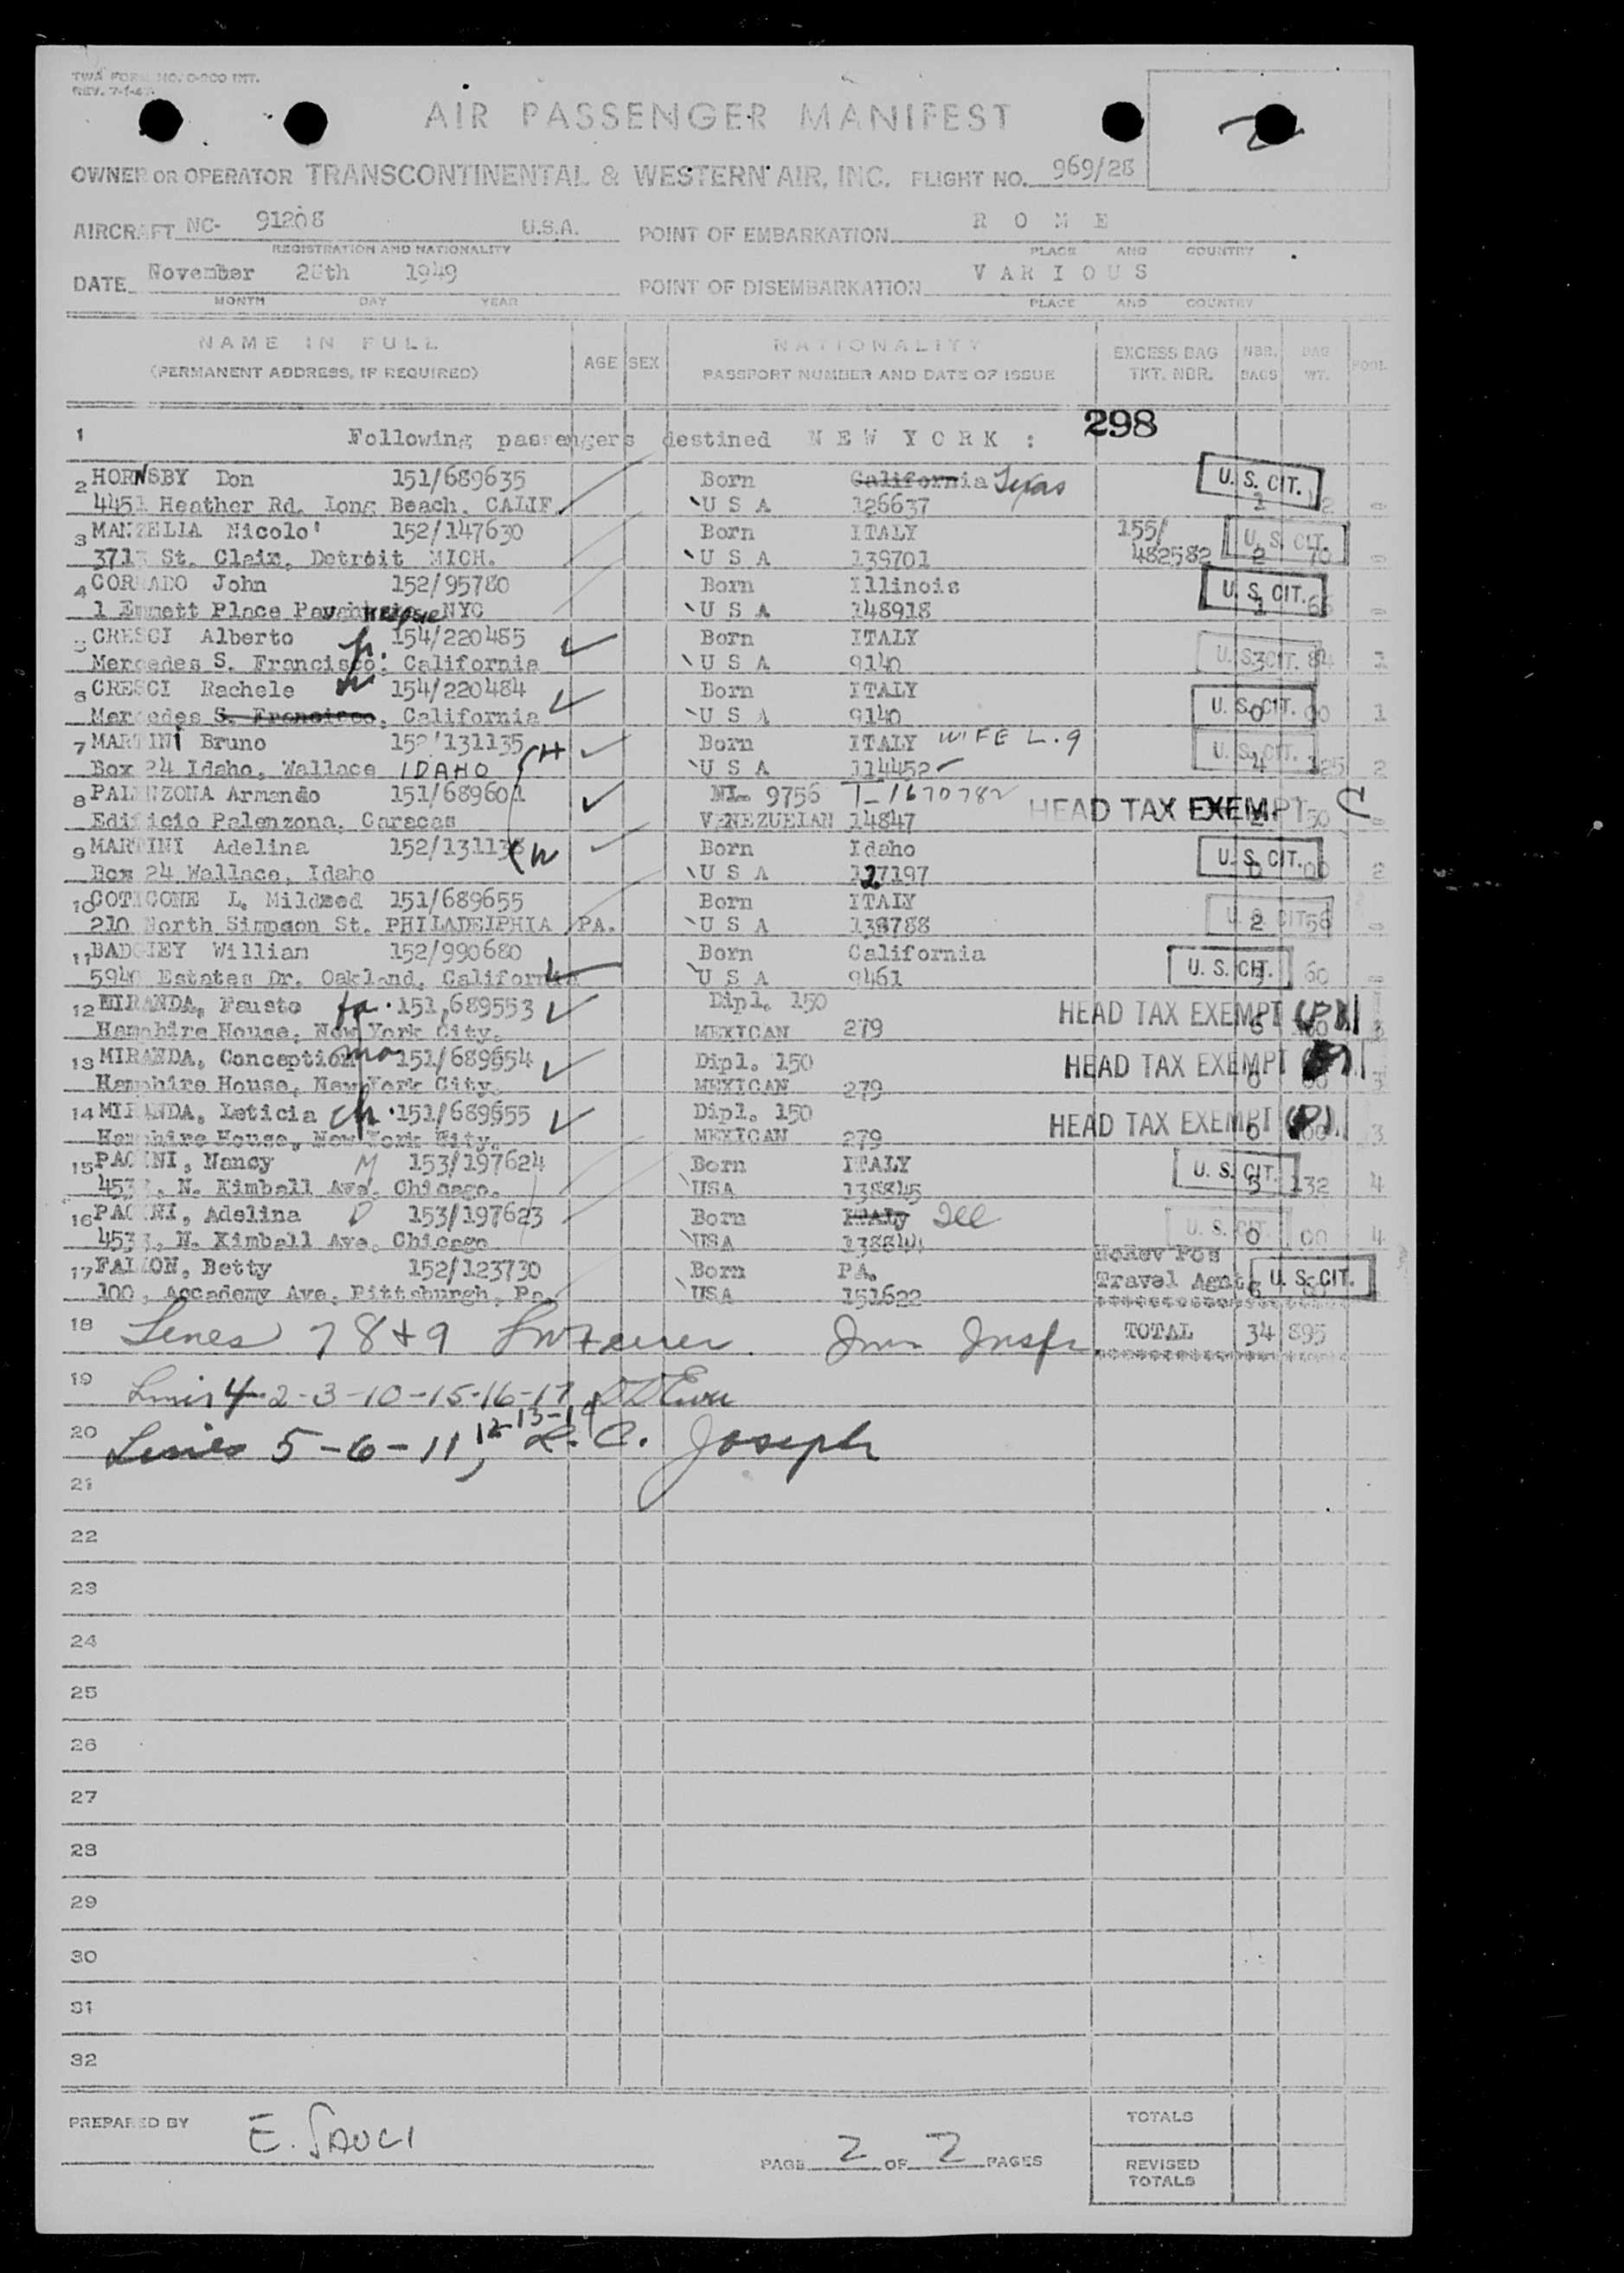 TWA FORM NO. 0-200 INT.
REV. 7-1-4
AIR PASSENGER MANIFEST
OWNER OR OPERATOR TRANSCONTINENTAL & WESTERN AIR, INC. FLIGHT NO. 969/28
AIRCRAFT NC- 91208 U.S.A. POINT OF EMBARKATION R O M E
REGISTRATION AND NATIONALITY PLACE AND COUNTRY
DATE November 28th 1949 POINT OF DISEMBARKATION V A R I O U S
MONTH DAY YEAR PLACE AND COUNTRY
NAME IN FULL AGE SEX NATIONALITY EXCESS BAG NBR. BAG POOL
(PERMANENT ADDRESS, IF REQUIRED) PASSPORT NUMBER AND DATE OF ISSUE TKT. NBR. BAGS WT.
298
1 Following passengers destined N E W Y O R K :
2 HORNSBY Don 151/689635 Born California Texas U. S. CIT.
4451 Heather Rd. Long Beach. CALIF. U S A 126637 1
3 MANZELLA Nicolo' 152/147630 Born ITALY 155/ U. S. CIT.
371 St. Clair, Detroit MICH. U S A 139701 482582 2 70
4 CORRADO John 152/95780 Born Illinois U. S. CIT.
1 Emmett Place NYC U S A 148918 1
5 CRESCI Alberto 154/220485 Born ITALY U. S. CIT.
Mercedes S. Francisco: California U S A 9140 3 84 1
6 CRESCI Rachele W 154/220484 Born ITALY U. S. CIT.
Mercedes S. Francisco, California U S A 9140 0 00 1
7 MARTINI Bruno 152/131135 H Born ITALY WIFE L. 9 U. S. CIT.
Box 24 Idaho, Wallace IDAHO U S A 114452 4 125 2
8 PALENZONA Armando 151/689601 NL- 9756 T-1670782 HEAD TAX EXEMPT C
Edificio Palenzona, Caracas VENEZUELAN 14847 50
9 MARTINI Adelina 152/131136 W Born Idaho U. S. CIT.
Box 24 Wallace, Idaho U S A 127197 0 00 2
10 COTICONE L. Mildred 151/689655 Born ITALY U. S. CIT
210 North Simpson St. PHILADELPHIA PA. U S A 138788 2 56
11 BADGLEY William 152/990680 Born California U. S. CIT.
5940 Estates Dr. Oakland, California U S A 9461 60
12 MIRANDA, Fausto fa. 151,689553 Dipl. 150 HEAD TAX EXEMPT (P)
Hamphire House, New York City. MEXICAN 279 3
13 MIRANDA, Conception mo 151/689554 Dipl. 150 HEAD TAX EXEMPT
Hamphire House, New York City. MEXICAN 279 0 00 3
14 MIRANDA, Leticia ch. 151/689555 Dipl. 150 HEAD TAX EXEMPT (P)
Hamphire House, New York City. MEXICAN 279 0 00 3
15 PACINI, Nancy M 153/197624 Born ITALY U. S. CIT.
453, N. Kimball Ave. Chicago. USA 138845 5 132 4
16 PACINI, Adelina D 153/197623 Born ITALY Ill U. S. CIT.
453, N. Kimball Ave. Chicago USA 138844 0 00 4
NoRev Pos
17 FALLON, Betty 152/123730 Born PA. Travel Agnt. U. S. CIT.
100, Accademy Ave. Pittsburgh, Pa. USA 151622
18 Lines 7 8+9 Imm Inspr. TOTAL 34 895
19 Lines 4-2-3-10-15-16-17
20 Lines 5-6-11, 12-13-14 L. C. Joseph
21
22
23
24
25
26
27
28
29
30
31
32
PREPARED BY E. SAUCI TOTALS
PAGE 2 OF 2 PAGES REVISED
TOTALS